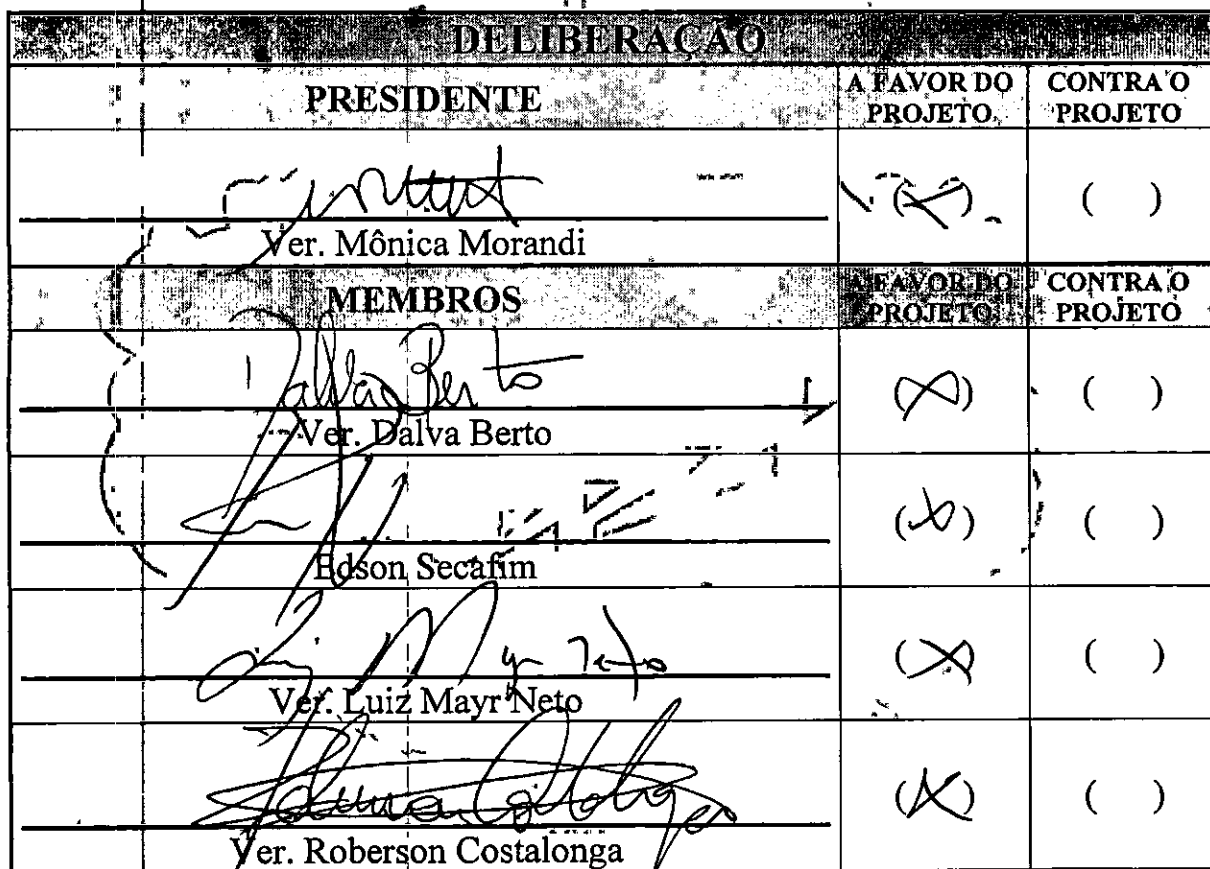 DELIBERAÇAO
PRESIDENTE A FAVOR DO PROJETO CONTRA O PROJETO
(X) ( )
Ver. Mônica Morandi
MEMBROS A FAVOR DO PROJETO CONTRA O PROJETO
Dalva Berto (X) ( )
Ver. Dalva Berto
(X) ( )
Edson Secafim
Luiz Mayr Neto (X) ( )
Ver. Luiz Mayr Neto
(X) ( )
Ver. Roberson Costalonga